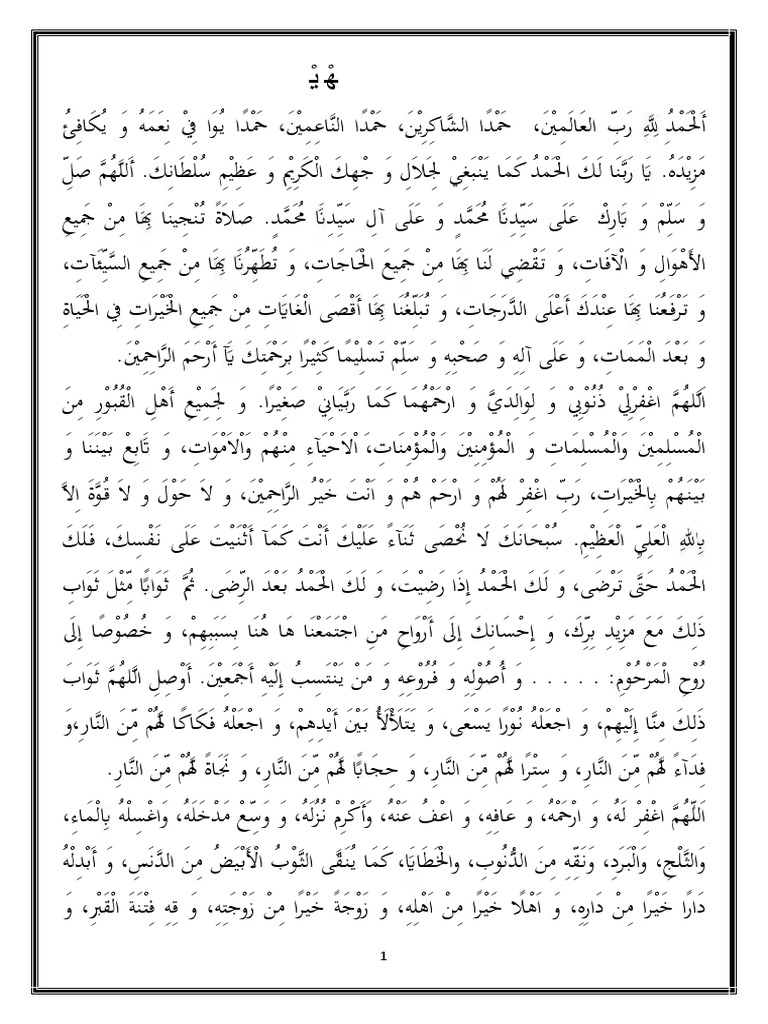 هْ يْ
أَلْحَمْدُ لِلَّهِ رَبِّ العَالَمِيْنَ، حَمْدًا الشَّاكِرِيْنَ، حَمْدًا النَّاعِمِيْنَ، حَمْدًا يُوَا فِيْ نِعَمَهُ وَ يُكَافِئُ
مَزِيْدَهُ. يَا رَبَّنَا لَكَ الْحَمْدُ كَمَا يَنْبَغِيْ لِجَلَالِ وَ جْهِكَ الْكَرِيْمِ وَ عَظِيْمِ سُلْطَانِكَ. أَللَّهُمَّ صَلِّ
وَ سَلِّمْ وَ بَارِكْ عَلَى سَيِّدِنَا مُحَمَّدٍ وَ عَلَى آلِ سَيِّدِنَا مُحَمَّدٍ. صَلَاةً تُنْجِينَا بِهَا مِنْ جَمِيعِ
الأَهْوَالِ وَ الْآفَاتِ، وَ تَقْضِي لَنَا بِهَا مِنْ جَمِيعَ الْحَاجَاتِ، وَ تُطَهِّرُنَا بِهَا مِنْ جَمِيعِ السَّيِّئَآتِ،
وَ تَرْفَعُنَا بِهَا عِنْدَكَ أَعْلَى الدَّرَجَاتِ، وَ تُبَلِّغُنَا بِهَا أَقْصَى الْغَايَاتِ مِنْ جَمِيعِ الْخَيْرَاتِ فِي الْحَيَاةِ
وَ بَعْدَ الْمَمَاتِ، وَ عَلَى آلِهِ وَ صَحْبِهِ وَ سَلِّمْ تَسْلِيْمًا كَثِيْرًا بِرَحْمَتِكَ يَآ أَرْحَمَ الرَّاحِمِيْنَ.
اَللَّهُمَّ اغْفِرْلِيْ ذُنُوْبِيْ وَ لِوَالِدَيَّ وَ ارْحَمْهُمَا كَمَا رَبَّيَانِيْ صَغِيْرًا. وَ لِجَمِيْعِ أَهْلِ الْقُبُوْرِ مِنَ
الْمُسْلِمِيْنَ والْمُسْلِمَاتِ وَ الْمُؤْمِنِيْنَ وَالْمُؤْمِنَاتِ، الْاَحْيَآءِ مِنْهُمْ وَالْاَمْوَاتِ، وَ تَابِعْ بَيْنَنَا وَ
بَيْنَهُمْ بِالْخَيْرَاتِ، رَبِّ اغْفِرْ لَهُمْ وَ ارْحَمْ هُمْ وَ اَنْتَ خَيْرُ الرَّاحِمِيْنَ، وَ لاَ حَوْلَ وَ لاَ قُوَّةَ اِلاَّ
بِاللهِ الْعَلِيِّ الْعَظِيْمِ. سُبْحَانَكَ لَا نُحْصَى ثَنَاءً عَلَيْكَ أَنْتَ كَمَآ أَثْنَيْتَ عَلَى نَفْسِكَ، فَلَكَ
الْحَمْدُ حَتَّى تَرْضَى، وَ لَكَ الْحَمْدُ إِذَا رَضِيْتَ، وَ لَكَ الْحَمْدُ بَعْدَ الرِّضَى. ثُمَّ ثَوَابًا مِّثْلَ ثَوَابِ
ذَلِكَ مَعَ مَزِيْدِ بِرِّكَ، وَ إِحْسَانِكَ إِلَى أَرْوَاحِ مَنِ اجْتَمَعْنَا هَا هُنَا بِسَبَبِهِمْ، وَ خُصُوْصًا إِلَى
رُوْحِ الْمَرْحُوْمِ: . . . . . وَ أُصُوْلِهِ وَ فُرُوْعِهِ وَ مَنْ يَنْتَسِبُ إِلَيْهِ أَجْمَعِيْنَ. أَوْصِلِ اللَّهُمَّ ثَوَابَ
ذَلِكَ مِنَّا إِلَيْهِمْ، وَ اجْعَلْهُ نُوْرًا يَسْعَى، وَ يَتَلَأْلَأُ بَيْنَ أَيْدِهِمْ، وَ اجْعَلْهُ فَكَاكًا لَّهُمْ مِّنَ النَّارِ،وَ
فِدَآءً لَّهُمْ مِّنَ النَّارِ، وَ سِتْرًا لَّهُمْ مِّنَ النَّارِ، وَ حِجَابًا لَّهُمْ مِّنَ النَّارِ، وَ نَجَاةً لَّهُمْ مِّنَ النَّارِ.
اَللَّهُمَّ اغْفِرْ لَهُ، وَ ارْحَمْهُ، وَ عَافِهِ، وَ اعْفُ عَنْهُ، وَأَكْرِمْ نُزُلَهُ، وَ وَسِّعْ مَدْخَلَهُ، وَاغْسِلْهُ بِالْمَاءِ،
وَالثَّلْجِ، وَالْبَرَدِ، وَنَقِّهِ مِنَ الذُّنُوبِ، والْخَطَايَا، كَمَا يُنَقَّى الثَّوْبُ الْأَبْيَضُ مِنَ الدَّنَسِ، وَ أَبْدِلْهُ
دَارًا خَيْرًا مِنْ دَارِهِ، وَ اَهْلًا خَيْرًا مِنْ اَهْلِهِ، وَ زَوْجَةً خَيْرًا مِنْ زَوْجَتِهِ، وَ قِهِ فِتْنَةَ الْقَبْرِ، وَ
1